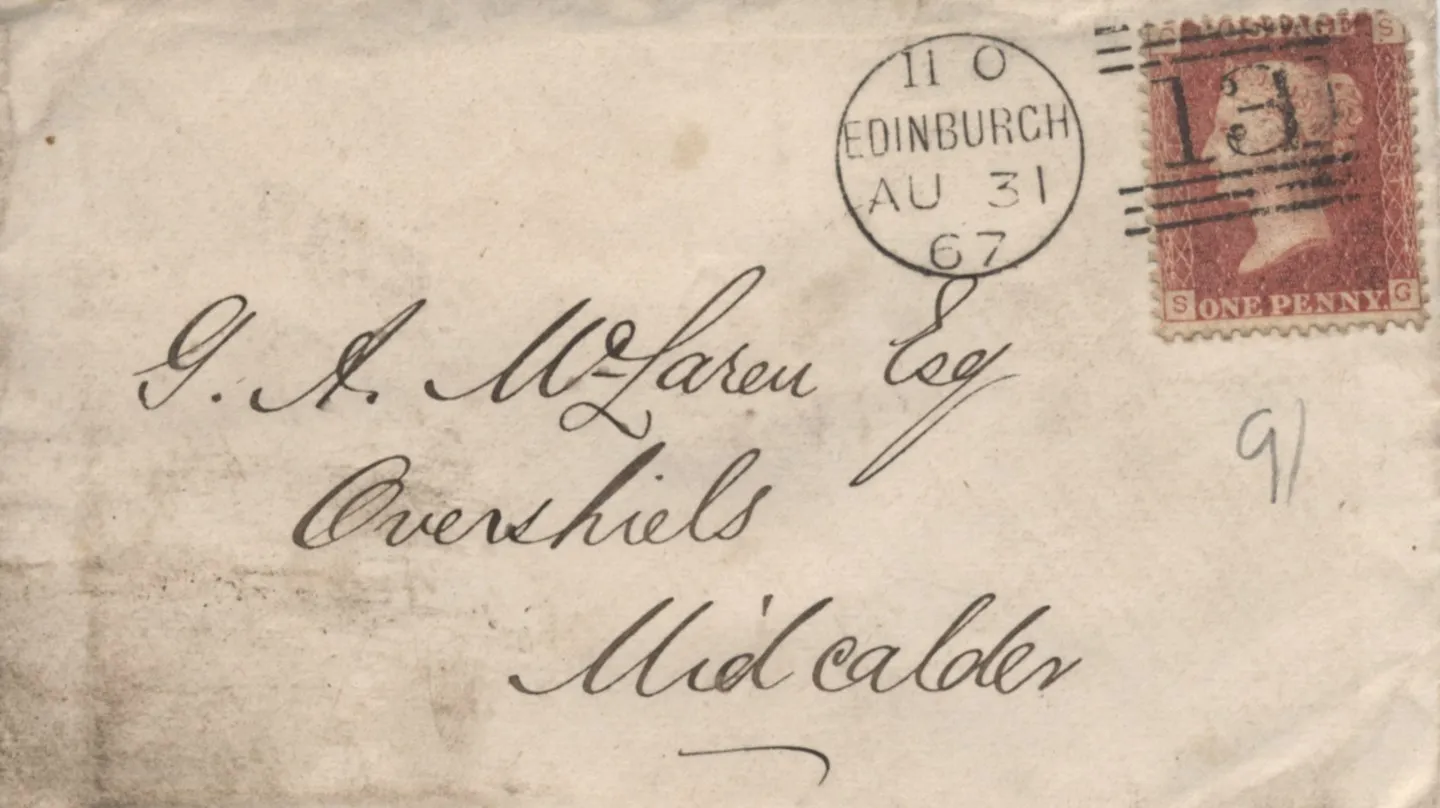 11 O
EDINBURGH
AU 31
67
131
G POSTAGE S
S ONE PENNY. G
G. A. McLaren Esq
Overshiels
Midcalder
91